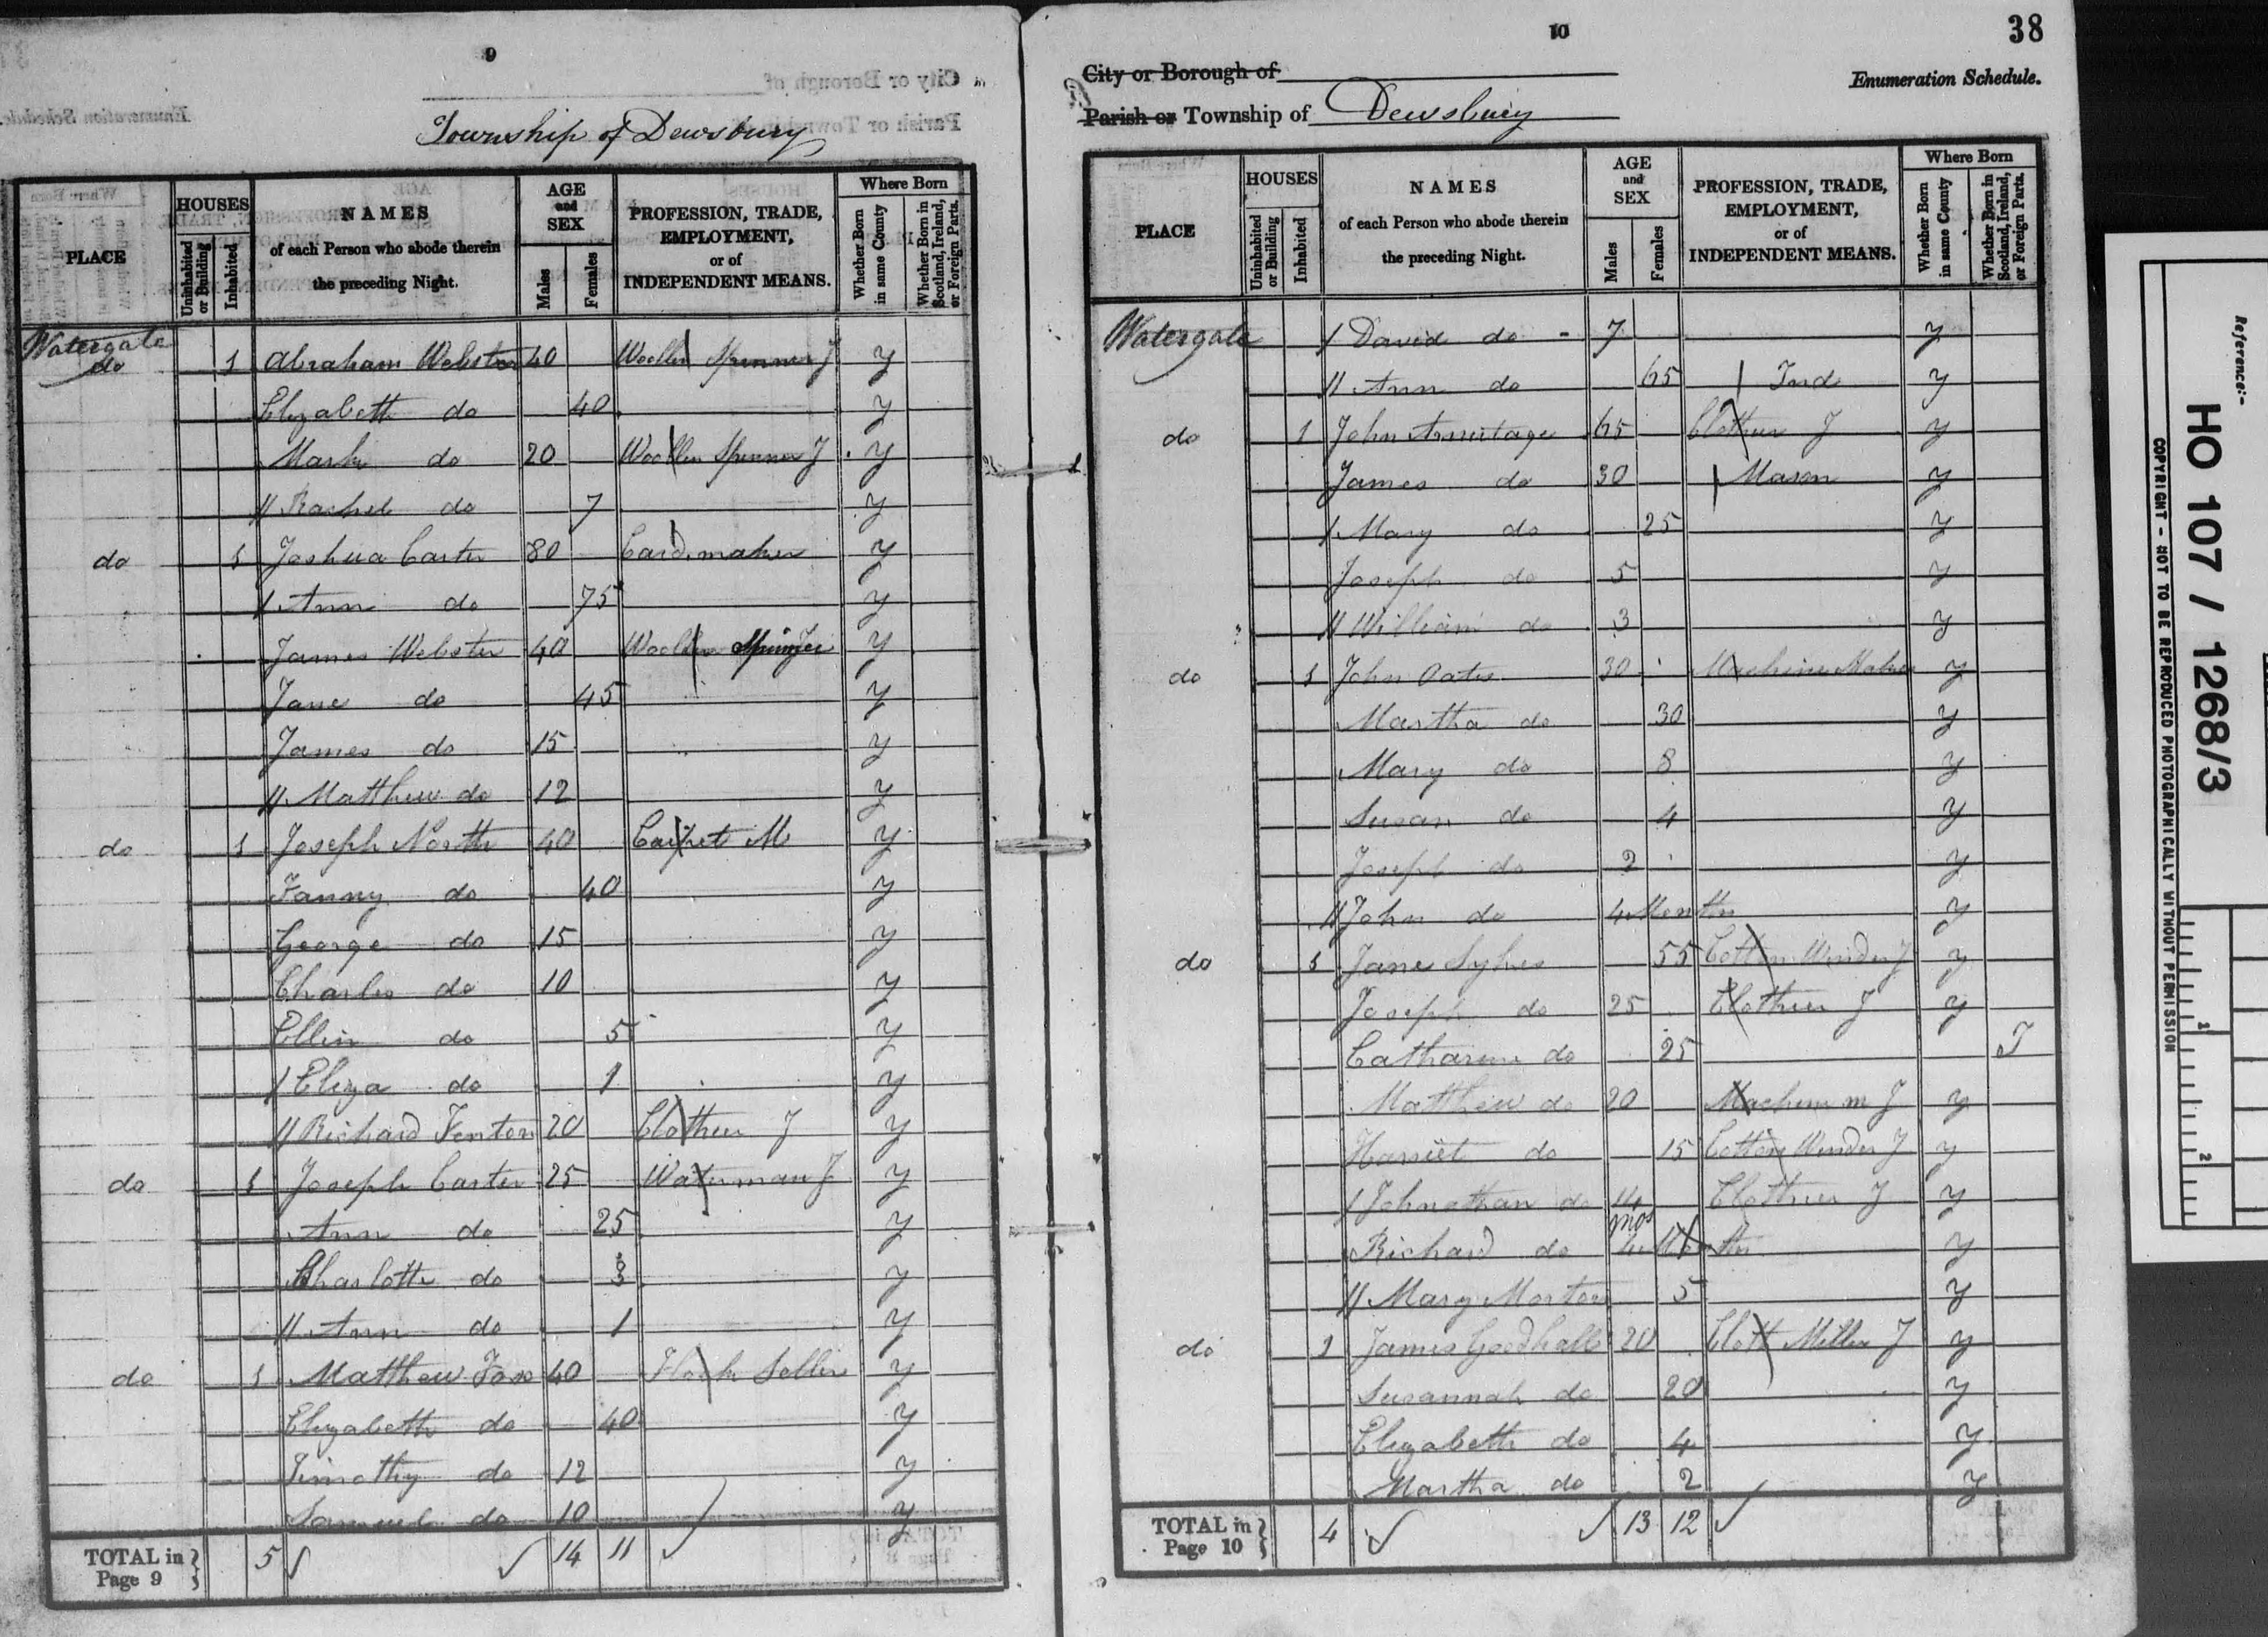 9
Township of Dewsbury
PLACE
HOUSES
Uninhabited or Building
Inhabited
NAMES
of each Person who abode therein
the preceding Night.
AGE
and
SEX
Males
Females
PROFESSION, TRADE,
EMPLOYMENT,
or of
INDEPENDENT MEANS.
Where Born
Whether Born in same County
Whether Born in Scotland, Ireland, or Foreign Parts.
Watergate
do 1 Abraham Webster 40 Woollen Spinner J y
Elizabeth do 40 y
Mark do 20 Woollen Spinner J y
// Rachel do 7 y
do 1 Joshua Carter 80 Card maker y
/ Ann do 75 y
James Webster 40 Woollen y
Jane do 45 y
James do 15 y
// Matthew do 12 y
do 1 Joseph North 40 Carpet M y
Fanny do 40 y
George do 15 y
Charles do 10 y
Ellin do 5 y
/ Eliza do 1 y
// Richard Fenton 20 Clothier J y
do 1 Joseph Carter 25 Waterman J y
Ann do 25 y
Charlotte do 3 y
// Ann do 1 y
do 1 Matthew Fox 40 Flock Seller y
Elizabeth do 40 y
Timothy do 12 y
Samuel do 10 y
TOTAL in Page 9 5 14 11
10
38
City or Borough of
Enumeration Schedule.
Parish or Township of Dewsbury
PLACE
HOUSES
Uninhabited or Building
Inhabited
NAMES
of each Person who abode therein
the preceding Night.
AGE
and
SEX
Males
Females
PROFESSION, TRADE,
EMPLOYMENT,
or of
INDEPENDENT MEANS.
Where Born
Whether Born in same County
Whether Born in Scotland, Ireland, or Foreign Parts.
Watergate / David do 7 y
// Ann do 65 Ind y
do 1 John Armitage 65 Clothier J y
James do 30 Mason y
/ Mary do 25 y
Joseph do 5 y
// William do 3 y
do 1 John Oates 30 Machine Maker y
Martha do 30 y
Mary do 8 y
Susan do 4 y
Joseph do 2 y
// John do 4 Months y
do 1 Jane Sykes 55 Cotton Winder J y
Joseph do 25 Clothier J y
Catharine do 25 I
Matthew do 20 Machine m J y
Harriet do 15 Cotton Winder J y
/ Johnathan do 14 Clothier J y
mos
Richard do 4 Months y
// Mary Morton 5 y
do 1 James Goodhall 20 Cloth Miller J y
Susannah do 20 y
Elizabeth do 4 y
Martha do 2 y
TOTAL in Page 10 4 13 12
Reference:-
HO 107 / 1268/3
COPYRIGHT - NOT TO BE REPRODUCED PHOTOGRAPHICALLY WITHOUT PERMISSION
1
2